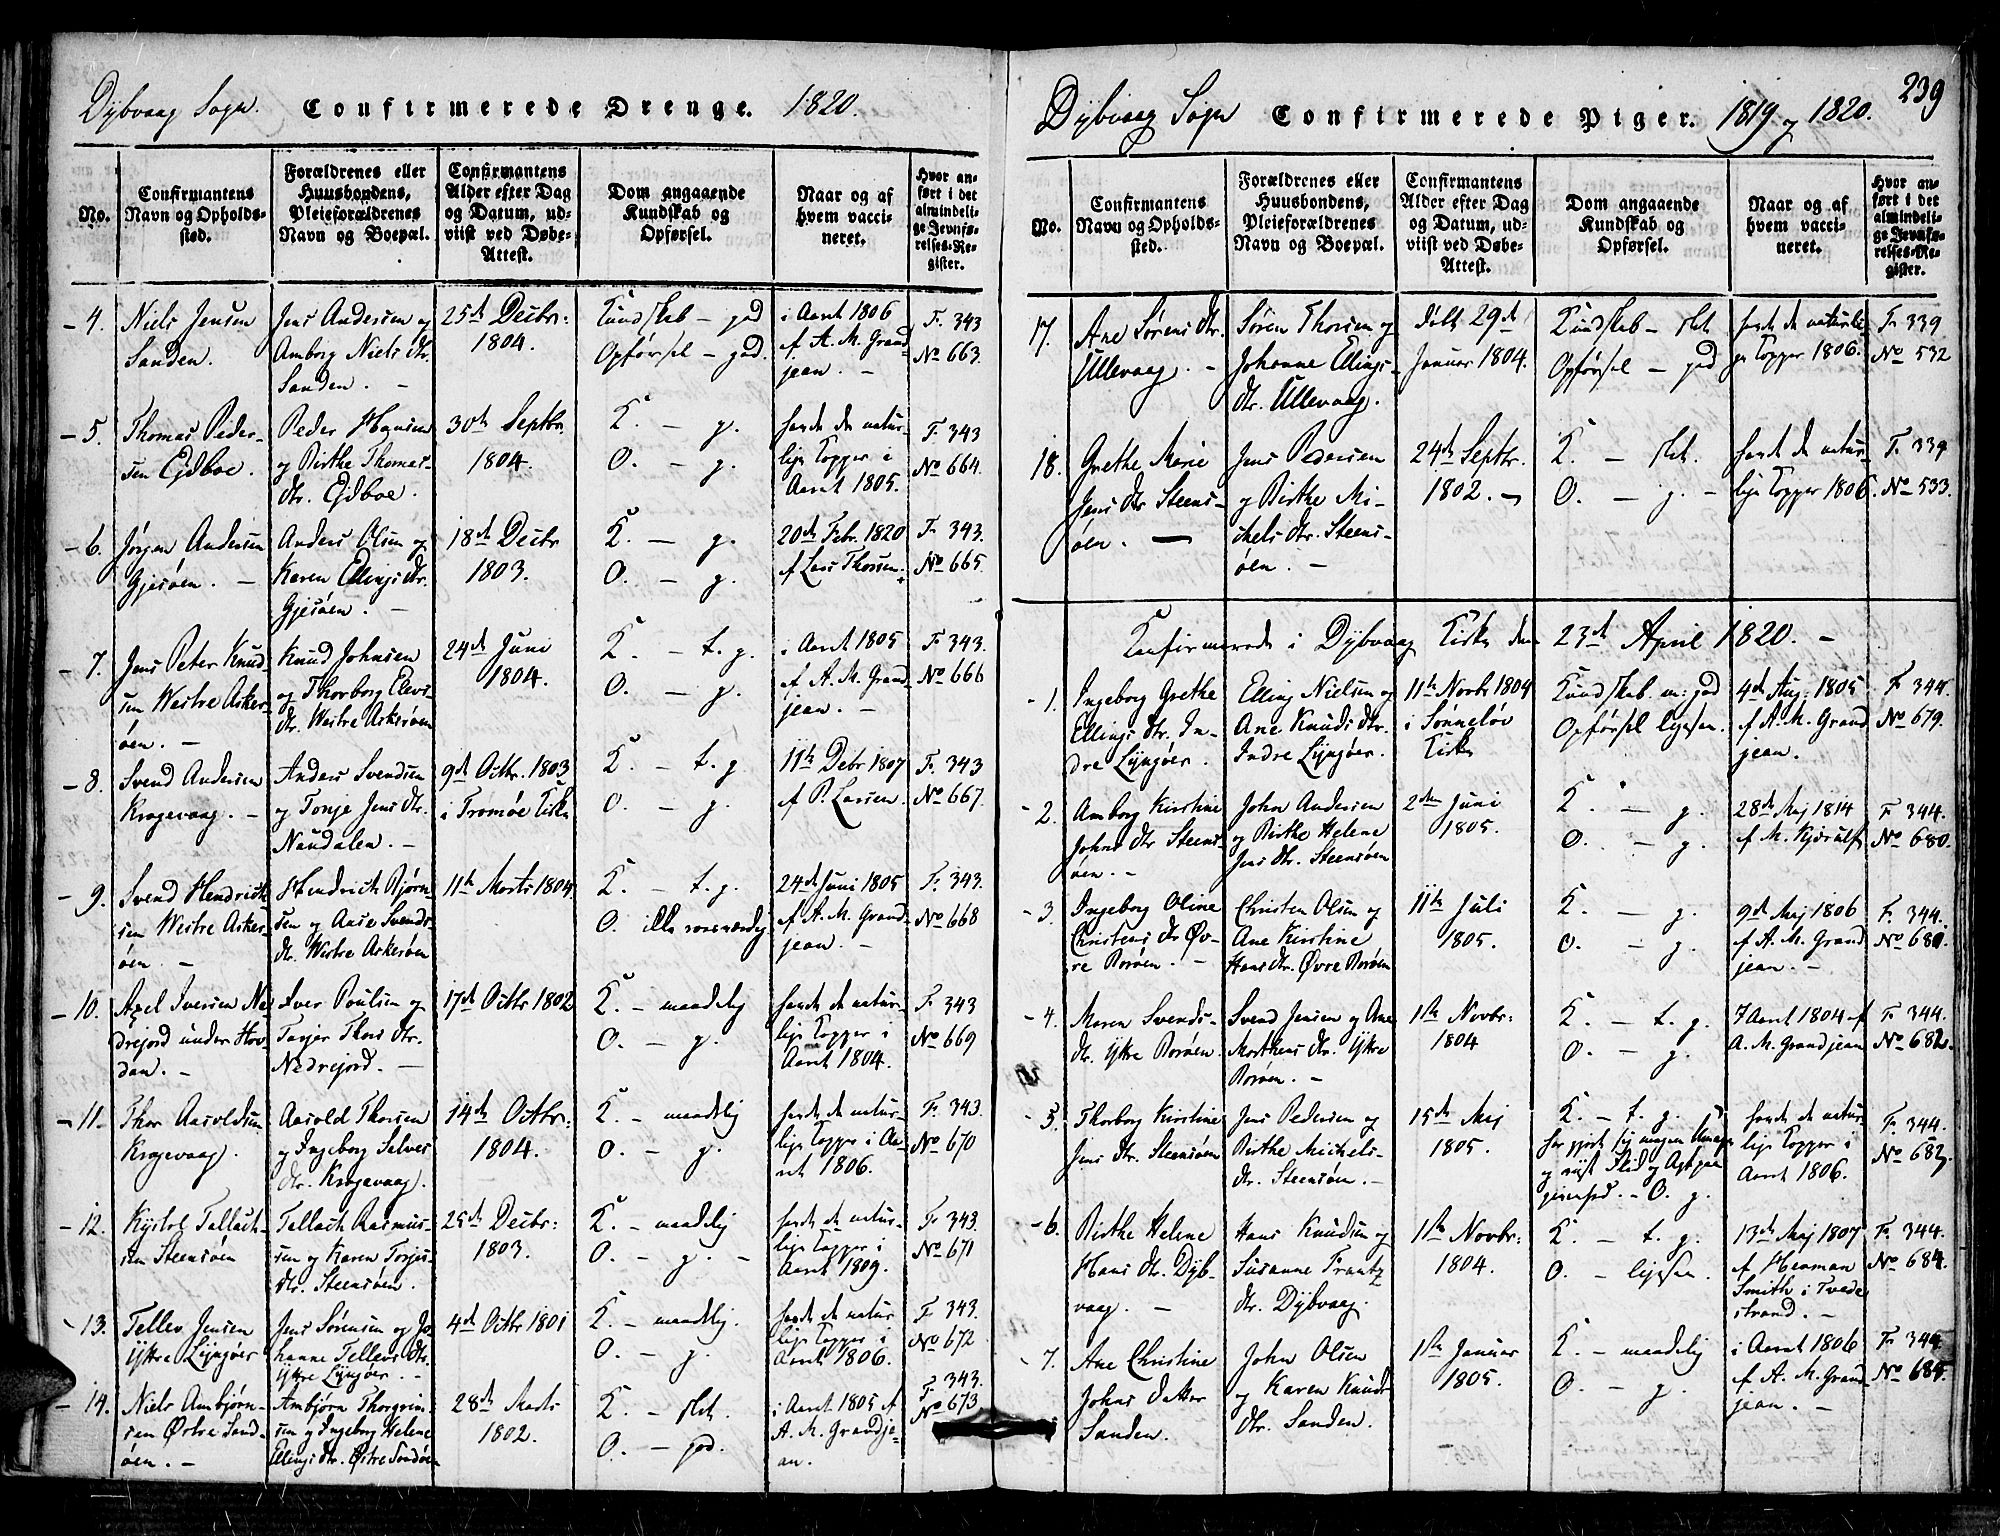 Dybvaag Sogn. Confirmerede Drenge. 1820.
No.
Confirmantens
Navn og Opholds-
sted.
Forældrenes eller
Huusbondens,
Pleieforældrenes
Navn og Boepæl.
Confirmantens
Alder efter Dag
og Datum, ud-
viist ved Døbe-
Attest.
Dom angaaende
Kundskab og
Opførsel.
Naar og af
hvem vacci-
neret.
Hvor an-
ført i det
almindeli-
ge Jevnfø-
relses-Re-
gister.
4.
Niels Jensen
Sanden.
Jens Andersen og
Amborg Niels dtr.
Sanden. -
25de Decbr:
1804.
Kundskab - god
Opførsel - god.
i Aaret 1806
af A. M. Grand-
jean. -
F. 343
No 663.
5.
Thomas Peder-
sen Ejdboe.
Peder Hansen
og Birthe Thomas-
dtr. Ejdboe.
30te Septbr.
1804.
K. - g.
O. - g.
havde de natur-
lige Kopper i
Aaret 1805.
F. 343
No 664.
6.
Jørgen Andersen
Gjesøen. -
Anders Olsen og
Karen Ellings dtr.
Gjesøen. -
18de Decbr
1803.
K. - g.
O. - g.
20de Febr. 1820
af Lars Thorsen.
F. 343.
No 665.
7.
Jens Peter Knud
sen Westre Asker-
øen. -
Knud Johnsen
og Thorborg Elevs-
dtr. Westre Askerøen
24de Juni
1804.
K. - t. g.
O. - g.
i Aaret 1805
af A. M. Grand-
jean. -
F. 343.
No 666
8.
Svend Andersen
Krogevaag. -
Anders Svendsen
og Tonje Jens dtr.
Naudalen. -
9de Octbr. 1803
i Tromøe Kirke
K. - t. g.
O. - g.
11te Debr 1807
af P. Larsen.
F. 343
No 667.
9.
Svend Hendrich
sen Westre Asker-
øen -
Hendrich Bjørn-
sen og Aase Svends-
dtr. Westre Askerøen
11te Marts 1804.
K. - t. g.
O. ikke roesværdig
24de Juni 1805
af A. M. Grand-
jean. -
F. 343.
No 668
10.
Axel Iversen Ne-
drejord under Hov-
dan. -
Iver Poulsen og
Tarjer Thors dtr.
Nedrejord. -
17de Octbr 1802
K. - maadelig
O. - g.
havde de natur-
lige Kopper i
Aaret 1804.
F. 343
No 669
11.
Thor Aasoldsen
Krogevaag.
Aasold Thorsen
og Ingeborg Salves
dtr. Krogevaag.
14de Octbr:
1804.
K. - maadelig
O. - g.
havde de natur-
lige Kopper i Aa-
ret 1806.
F. 343.
No 670
12.
Kystol Tallach-
sen Steensøen
Tallach Rasmus-
sen og Karen Torjus-
dtr. Steensøen.
25de Decbr:
1803.
K. - maadelig
O. - g. -
havde de natur-
lige Kopper i
Aaret 1809.
F. 343.
No 671
13.
Tellev Jensen
Yttre Lyngøer
Jens Sørensen og Jo-
hanne Tellevs dtr.
Yttre Lyngøer. -
4de Octbr 1801
K. - maadelig.
O. - g.
havde de natur
lige Kopper i
Aaret 1806.
F. 343.
No 672
14.
Niels Ambjørn-
sen Østre Sand-
øen. -
Ambjørn Thorgrim-
sen og Ingeborg Helene
Ellings dtr. Østre Sandøen
28de Marts
1802.
K. - slet
O. - god.
i Aaret 1805 af
A. M. Grandje-
an.
F. 343.
No 673
239
Dybvaag Sogn Confirmerede Piger. 1819 og 1820.
No.
Confirmantens
Navn og Opholds-
sted.
Forældrenes eller
Huusbondens,
Pleieforældrenes
Navn og Boepæl.
Confirmantens
Alder efter Dag
og Datum, ud-
viist ved Døbe-
Attest.
Dom angaaende
Kundskab og
Opførsel.
Naar og af
hvem vacci-
neret.
Hvor an-
ført i det
almindeli-
ge Jevnfø-
relses-Re-
gister.
17.
Ane Sørens dtr.
Ullevaag. -
Søren Thorsen og
Johanne Ellings-
dtr. Ullevaag.
Døbt 29de
Januar 1804.
Kundskab - slet
Opførsel - god
havde de naturli-
ge Kopper 1806.
F. 339
No 532
18.
Grethe Marie
Jens dtr Steens-
øen. -
Jens Pedersen
og Birthe Mi-
chels dtr. Steens-
øen. -
24de Septbr.
1802. -
K. - slet.
O. - g. -
havde de natur-
lige Kopper 1806.
F. 339
No 533.
Confirmerede i Dybvaag Kirke den 23de April 1820. -
1.
Ingeborg Grethe
Ellings dtr. In-
dre Lyngøer.
Elling Nielsen og
Ane Knuds dtr.
Indre Lyngøer.
11te Novbr 1804
i Sønneløv
Kirke
Kundskab m: god
Opførsel ligesaa.
4de Aug: 1805
af A. M. Grand
jean.
F. 344.
No 679.
2.
Amborg Kirstine
Johns dtr Steens-
øen. -
John Andersen
og Birthe Helene
Jens dtr. Steensøen
2den Juni
1805.
K. - g.
O. - g.
28de Maj 1814
af M. Kjerulf
F. 344.
No 680.
3.
Ingeborg Oline
Christens dtr Øv-
re Borøen. -
Christen Olsen og
Ane Kirstine
Hans dtr. Øvre Borøen
11te Juli
1805.
K. - g.
O. - g.
9de Maj 1806
af A. M. Grand
jean. -
F. 344.
No 681.
4.
Maren Svends-
dtr. Yttre Borøen.
Svend Jensen og Ane
Morthens dtr. Yttre
Borøen. -
1ste Novbr:
1804
K. - t. g.
O. - g.
i Aaret 1804 af
A. M. Grandjean
F. 344.
No 682.
5.
Thorborg Kirstine
Jens dtr. Steensøen
Jens Pedersen og
Birthe Michels-
dtr. Steensøen. -
15de Maj
1805.
K. - t. g.
har gjort sig megen Umage
og viist Flid og Agtpaa
givenhed. - O. g.
havde de natur
lige Kopper i
Aaret 1806.
F. 344.
No 683.
6.
Birthe Helene
Hans dtr. Dyb-
vaag. -
Hans Knudsen og
Susanne Frantz
dtr. Dybvaag.
1ste Novbr:
1804.
K. - t. g.
O. - ligesaa.
13de Maj 1807
af Herman
Smith i Tvede
strand. -
F. 344.
No 684.
7.
Ane Christine
Johns datter
Sanden.
John Olsen
og Karen Knuds
dtr. Sanden.
1ste Januar
1805.
K. - maadelig
O. - g.
i Aaret 1806
af A. M. Grand-
jean. -
F. 344.
No 684.